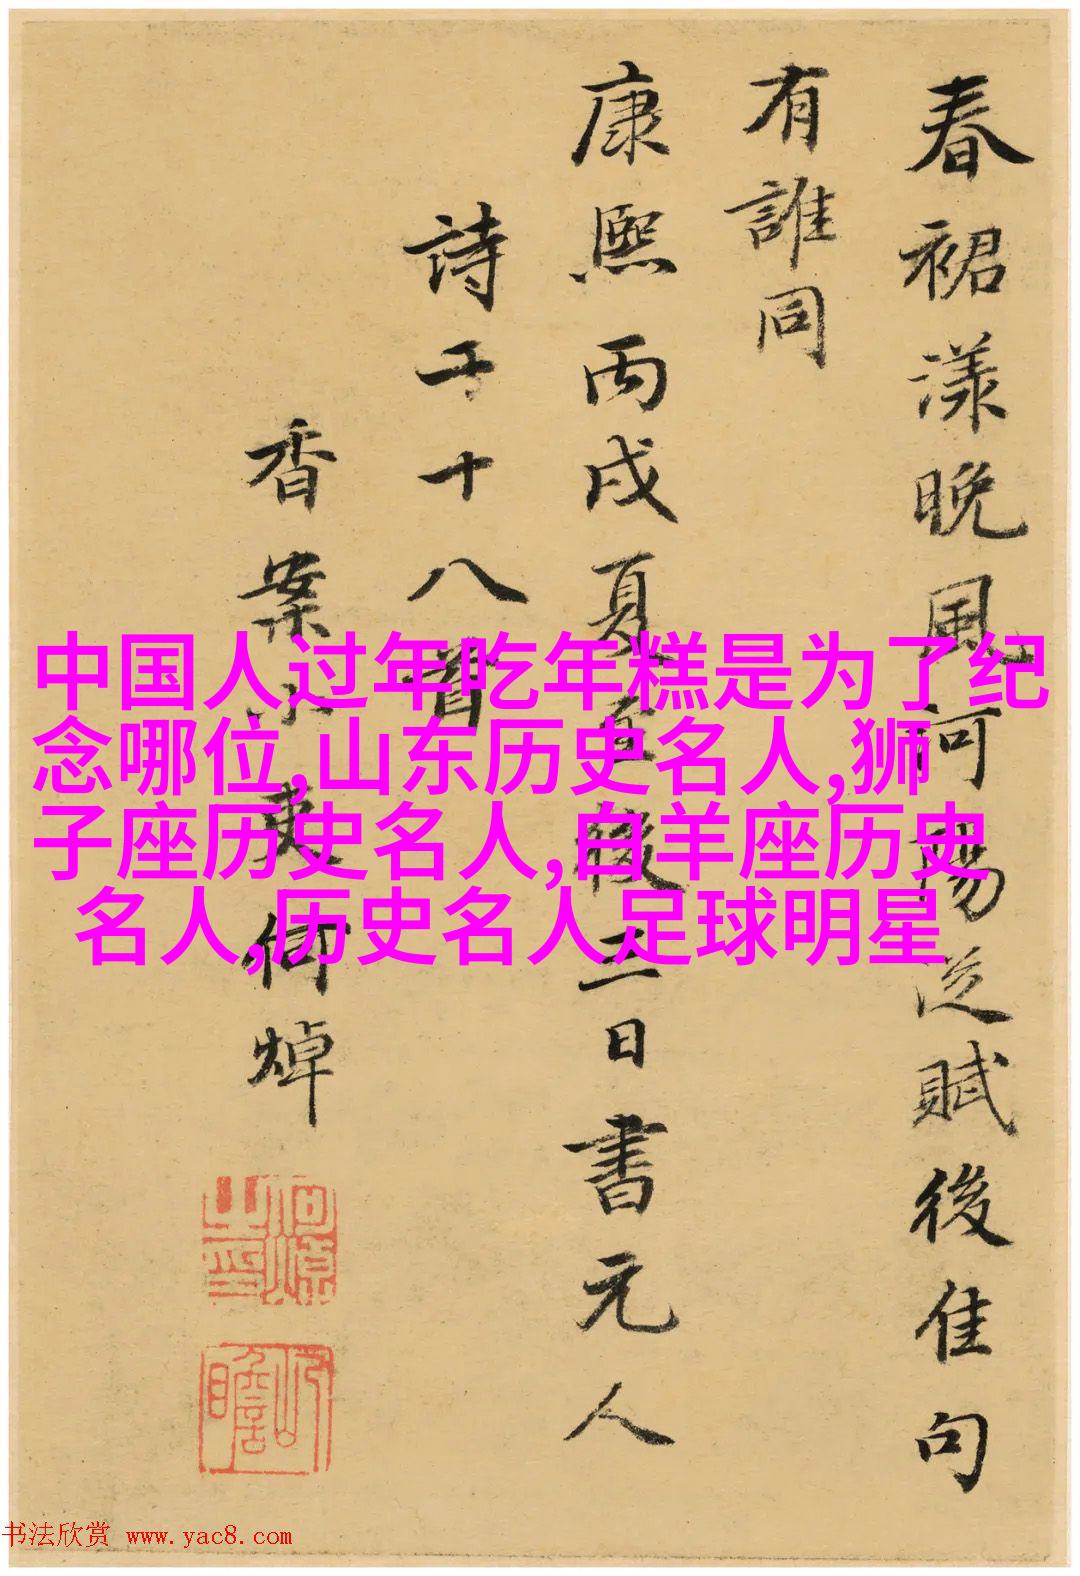 春裙漾晚風河陽從賦後佳句
有誰同
康熙丙戌夏至後三日書元人
詩五十八首
香案小吏何焯
中国人过年吃年糕是为了纪
念哪位,山东历史名人,狮
子座历史名人,白羊座历史
名人,历史名人足球明星
书法欣赏 www.yac8.com